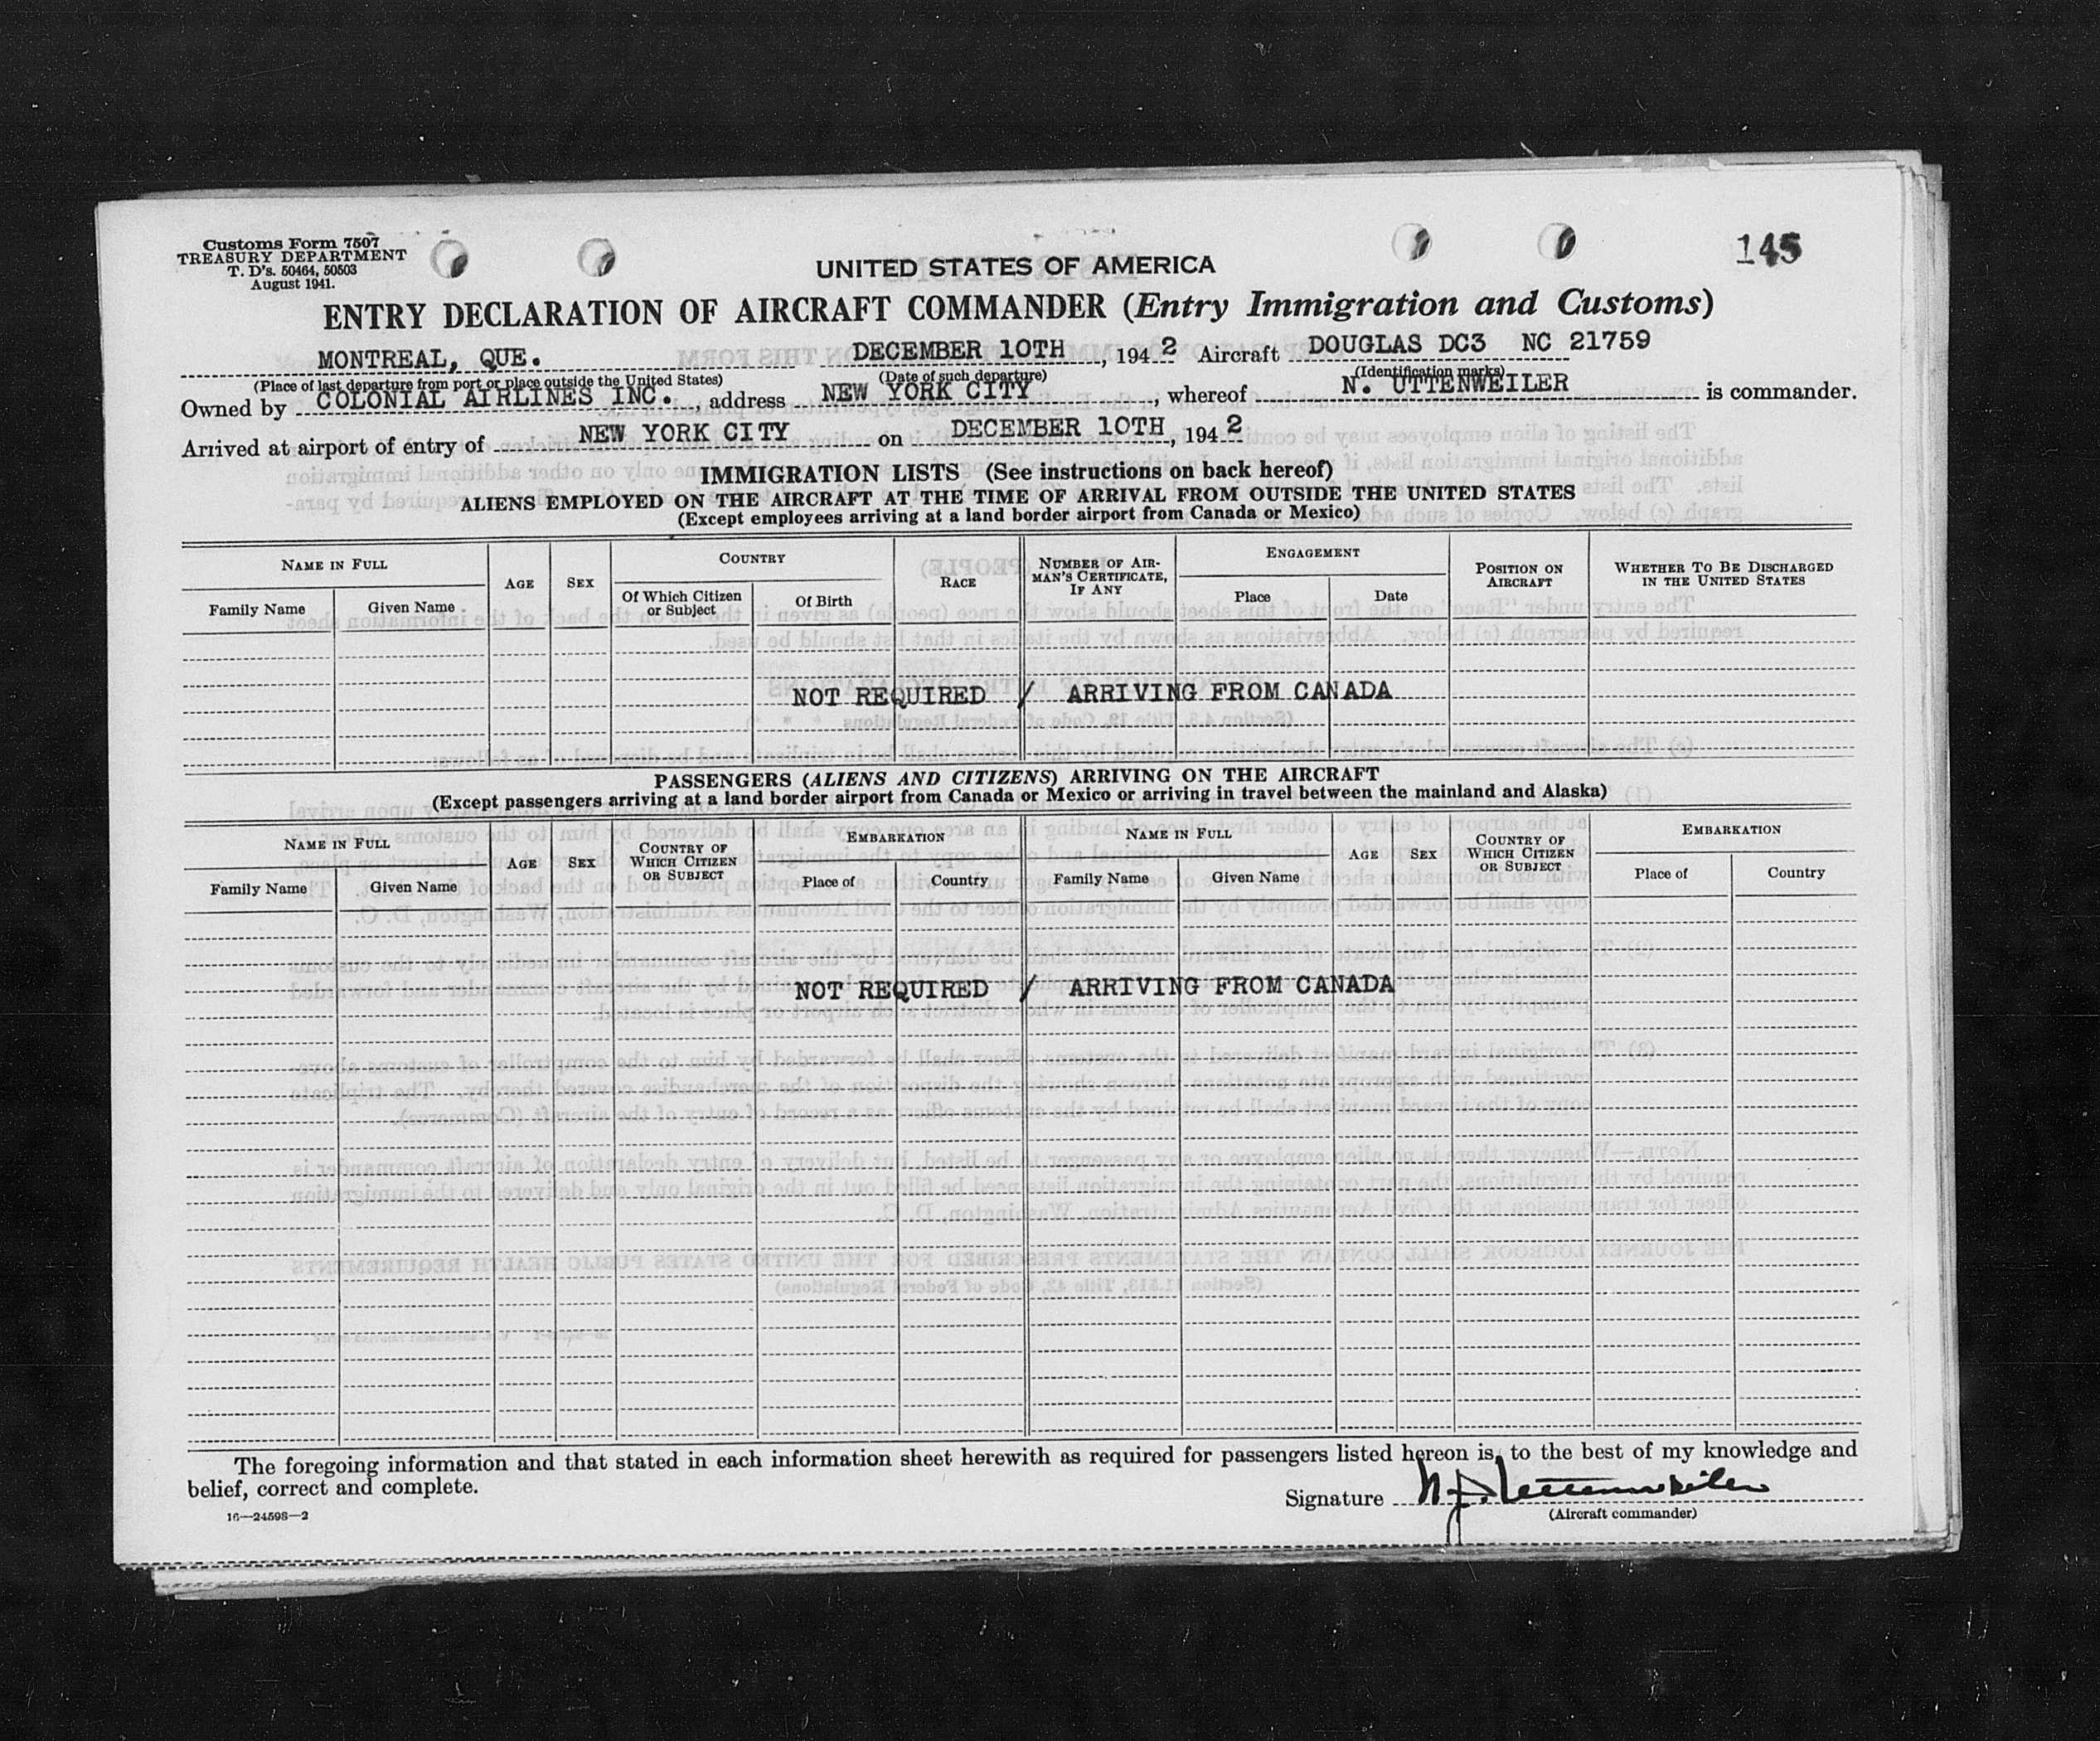 Customs Form 7507
TREASURY DEPARTMENT
T. D's. 50464, 50503
August 1941.
145
UNITED STATES OF AMERICA
ENTRY DECLARATION OF AIRCRAFT COMMANDER (Entry Immigration and Customs)
MONTREAL, QUE. DECEMBER 10TH, 1942 Aircraft DOUGLAS DC3 NC 21759
(Place of last departure from port or place outside the United States) (Date of such departure) (Identification marks)
Owned by COLONIAL AIRLINES INC., address NEW YORK CITY, whereof N. UTTENWEILER is commander.
Arrived at airport of entry of NEW YORK CITY on DECEMBER 10TH, 1942
IMMIGRATION LISTS (See instructions on back hereof)
ALIENS EMPLOYED ON THE AIRCRAFT AT THE TIME OF ARRIVAL FROM OUTSIDE THE UNITED STATES
(Except employees arriving at a land border airport from Canada or Mexico)
NAME IN FULL
Family Name Given Name
AGE
SEX
COUNTRY
Of Which Citizen or Subject
Of Birth
RACE
NUMBER OF AIR-
MAN'S CERTIFICATE,
IF ANY
ENGAGEMENT
Place Date
POSITION ON
AIRCRAFT
WHETHER TO BE DISCHARGED
IN THE UNITED STATES
NOT REQUIRED / ARRIVING FROM CANADA
PASSENGERS (ALIENS AND CITIZENS) ARRIVING ON THE AIRCRAFT
(Except passengers arriving at a land border airport from Canada or Mexico or arriving in travel between the mainland and Alaska)
NAME IN FULL
Family Name Given Name
AGE
SEX
COUNTRY OF
WHICH CITIZEN
OR SUBJECT
EMBARKATION
Place of Country
NAME IN FULL
Family Name Given Name
AGE
SEX
COUNTRY OF
WHICH CITIZEN
OR SUBJECT
EMBARKATION
Place of Country
NOT REQUIRED / ARRIVING FROM CANADA
The foregoing information and that stated in each information sheet herewith as required for passengers listed hereon is, to the best of my knowledge and
belief, correct and complete.
Signature N. J. Uttenweiler
(Aircraft commander)
16—24598—2